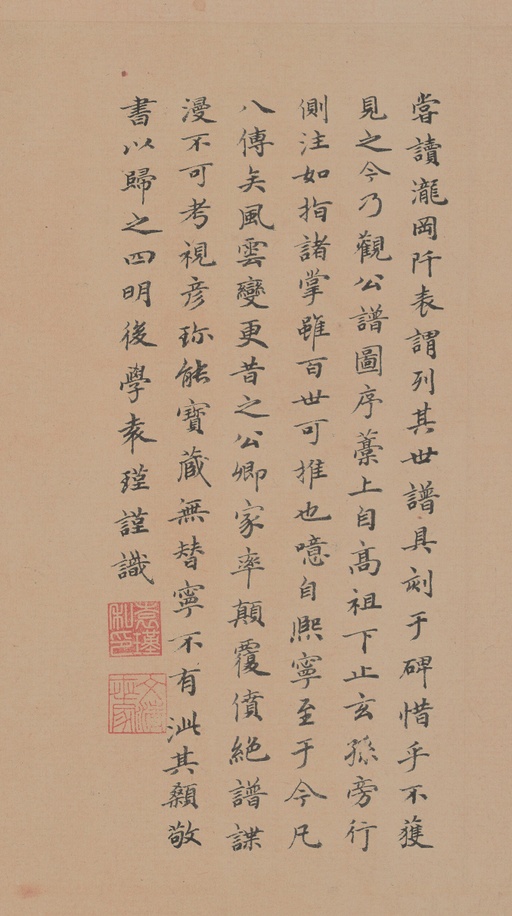 嘗讀瀧岡阡表謂列其世譜具刻于碑惜乎不獲
見之今乃觀公譜圖序藁上自高祖下止玄孫旁行
側注如指諸掌雖百世可推也噫自熈寧至于今凡
八傳矣風雲變更昔之公卿家率顛覆僨絕譜諜
漫不可考視彦珎能寶藏無替寧不有泚其顙敬
書以歸之四明後學袁瑾謹識
袁瑾私印